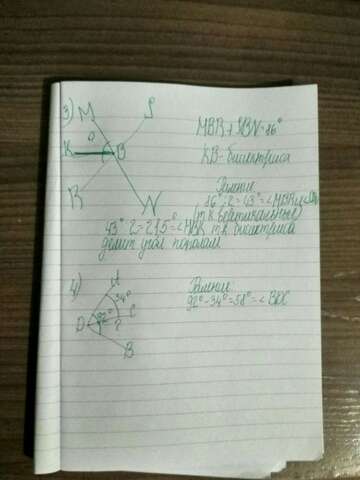 3)
M
S
K
B
R
N
MBR+SBN=86°
KB-биссектриса
Решение
86°:2=43°=∠MBR и ∠SBN
(т.к вертикальные)
43°:2=21,5°=∠MBK т.к биссектриса
делит угол пополам
4)
A
34°
D 92° C
?
B
Решение:
92°-34°=58°=∠BDC